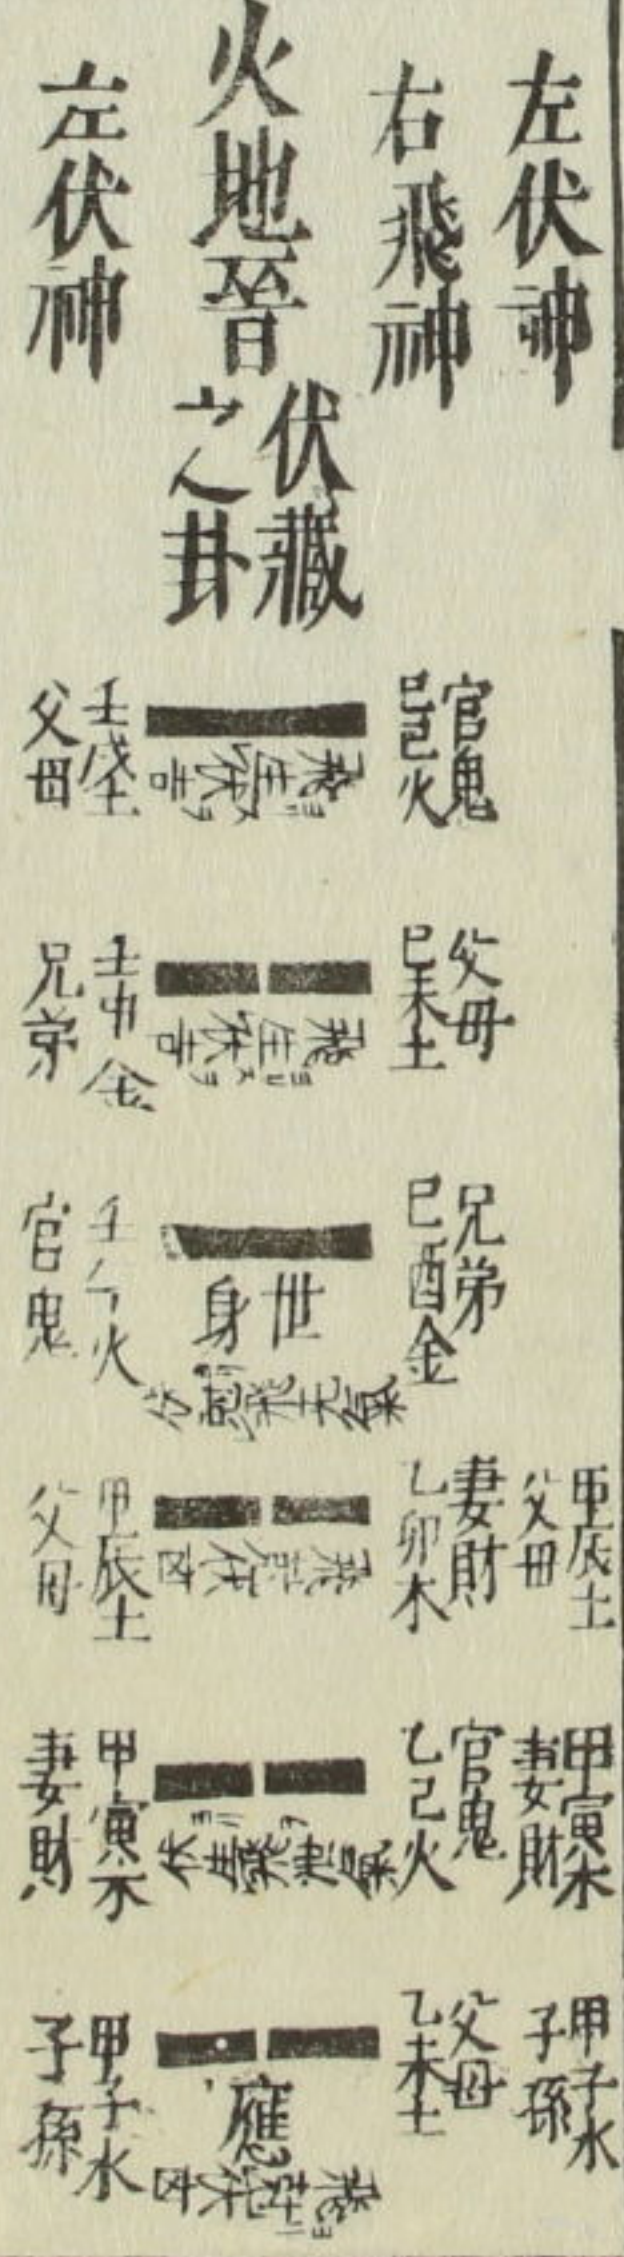 左伏神
右飛神
火地晉
伏藏
之卦
左伏神
官鬼
己巳火
飛生伏吉
壬戌土
父母
父母
己未土
飛生伏吉
壬申金
兄弟
兄弟
己酉金
世
身
壬午火
官鬼
甲辰土
父母
妻財
乙卯木
飛尅伏凶
甲辰土
父母
甲寅木
妻財
官鬼
乙巳火
甲寅木
妻財
甲子水
子孫
父母
乙未土
應
飛尅伏凶
甲子水
子孫